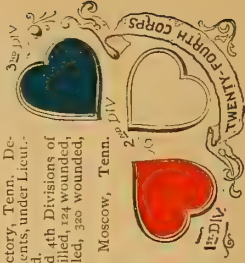 ctory, Tenn. De-
ents, under Lieut.-
d.
d 4th Divisions of
illed, 124 wounded,
led, 320 wounded,
Moscow, Tenn.
3RD DIV
2ND DIV
1ST DIV.
TWENTY-FOURTH CORPS